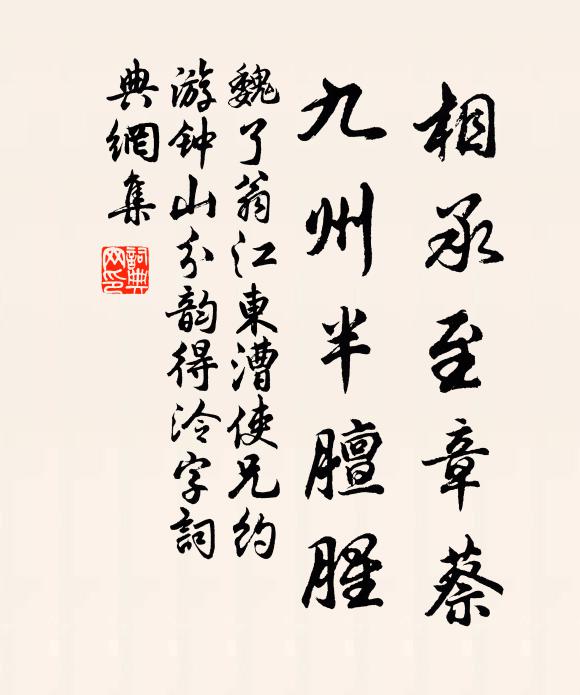 相承至章蔡
九州半膻腥
魏了翁江東漕使兄約
游钟山分韵得泠字詞
典網集
詞典網印